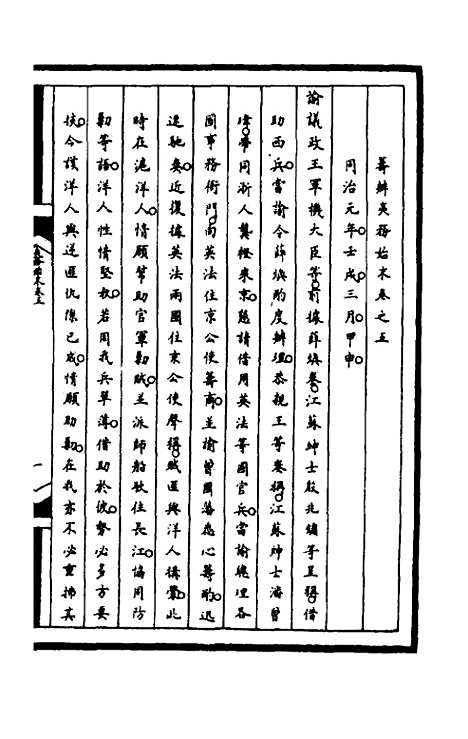 籌辦夷務始末卷之五
同治元年壬戌三月甲申
諭議政王軍機大臣等前據薛煥奏江蘇紳士殷兆鏞等呈稱借
助西兵當諭令薛煥酌度辦理恭親王等奏稱江蘇紳士潘曾
瑋帶同浙人龔橙來京懇請借用英法等國官兵當諭總理各
國事務衙門向英法住京公使籌商並諭曾國藩悉心籌酌迅
速馳奏近復據英法兩國住京公使聲稱賊匪與洋人構釁此
時在滬洋人情願幫助官軍剿賊並派師船駛往長江協同防
剿等語洋人性情堅執若用我兵單薄借助於彼勢必多方要
挾今該洋人與逆匪仇隙已成情願助剿在我亦不必重拂其